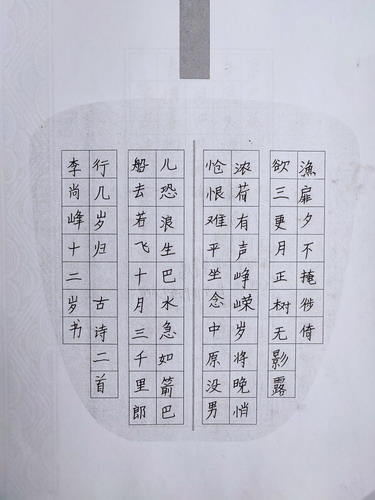 漁扉夕不掩徙倚
欲三更月正树无影露
浓荷有声峥嵘岁将晚悄
怆恨难平坐念中原没男
儿恐浪生巴水急如箭巴
船去若飞十月三千里郎
行几岁归 古诗二首
李尚峰十二岁书